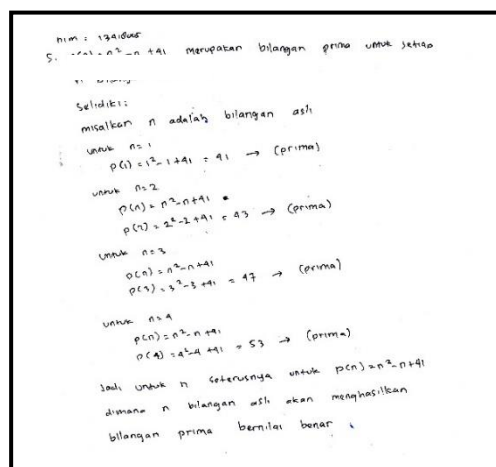 nim :
5. n² - n + 41 merupakan bilangan prima untuk setiap
selidiki :
misalkan n adalah bilangan asli
untuk n = 1
p(1) = 1² - 1 + 41 = 41 → (prima)
untuk n = 2
p(n) = n² - n + 41
p(2) = 2² - 2 + 41 = 43 → (prima)
untuk n = 3
p(n) = n² - n + 41
p(3) = 3² - 3 + 41 = 47 → (prima)
untuk n = 4
p(n) = n² - n + 41
p(4) = 4² - 4 + 41 = 53 → (prima)
Jadi untuk n seterusnya untuk p(n) = n² - n + 41
dimana n bilangan asli akan menghasilkan
bilangan prima bernilai benar .